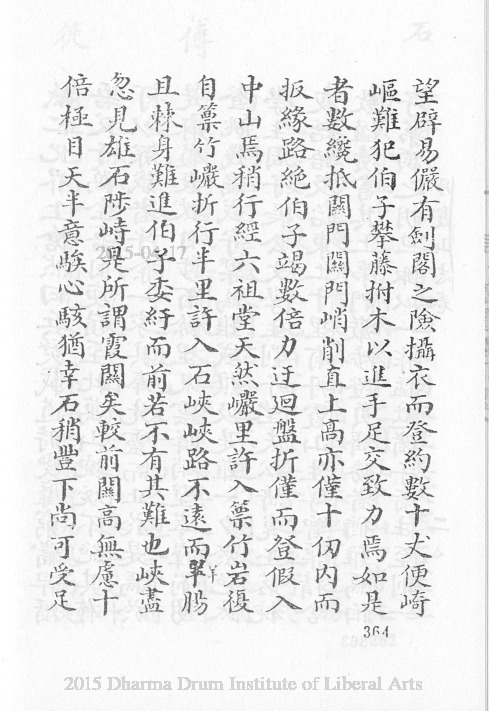 望辟易儼有劍閣之險攝衣而登約數十丈便崎
嶇難犯伯子攀藤拊木以進手足交致力焉如是
者數纔抵關門關門峭削直上高亦僅十仭內而
扳緣路絕伯子竭數倍力迂迴盤折僅而登假入
中山焉稍行經六祖堂天然巖里許入篻竹岩復
自篻竹巖折行半里許入石峽峽路不遠而羊腸
且棘身難進伯子委紆而前若不有其難也峽盡
忽見雄石陟峙是所謂霞關矣較前關高無慮十
倍極目天半意駾心駭猶幸石稍豐下尚可受足
364
2015-04-17
2015 Dharma Drum Institute of Liberal Arts